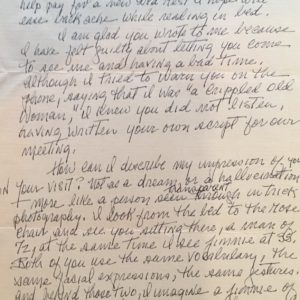 help pay for a new bed rest I hope will
ease backache while reading in bed.
I am glad you wrote to me because
I have felt guilty about letting you come
to see me and having a bad time.
Although I tried to warn you on the
phone, saying that I was "a crippled old
woman," I knew you did not listen,
having written your own script for our
meeting.
How can I describe my impression of you
on your visit? Not as a dream or a hallucination
more like a person seen transparent in trick
photography. I look from the bed to the rose
chair and see you sitting there, a man of
72, at the same time I see Jimmie at 33,
Both of you use the same vocabulary, the
same facial expressions, the same gestures.
And behind those two, I imagine a Jimmie of